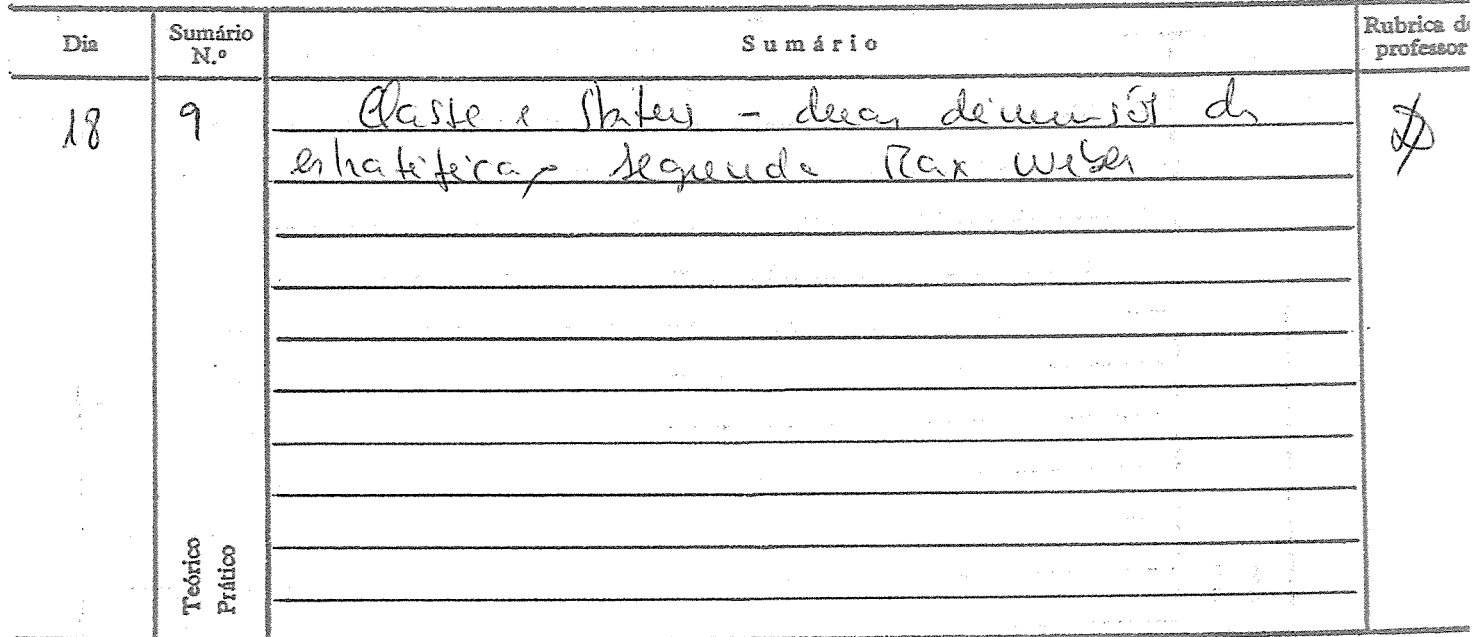 Dia
Sumário
N.º
Sumário
Rubrica do
professor
18
9
Classe e Status - duas dimensões da
estratificação segundo Max Weber
Teórico
Prático